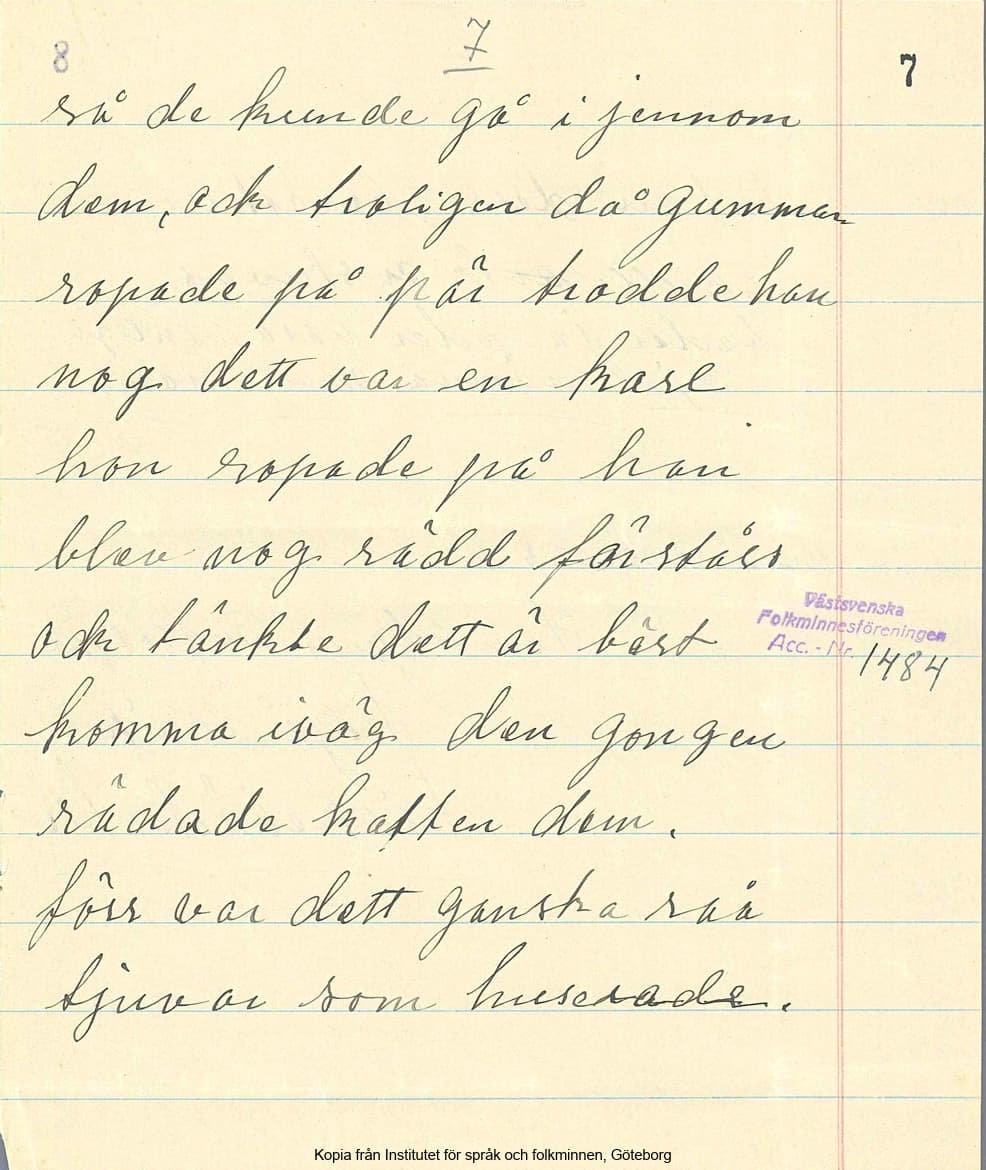 8 7 7
så de kunde gå i jennom
dem, ock troligen då gumman
ropade på pär trodde han
nog dett var en karl
hon ropade på han
blev nog rädd förståss
ock tänkte dett är bäst
komma iväg den gongen
rädade katten dem.
förr var dett ganska råa
tjuvar som huserade.
Västsvenska
Folkminnesföreningen
Acc. - Nr. 1484
Kopia från Institutet för språk och folkminnen, Göteborg